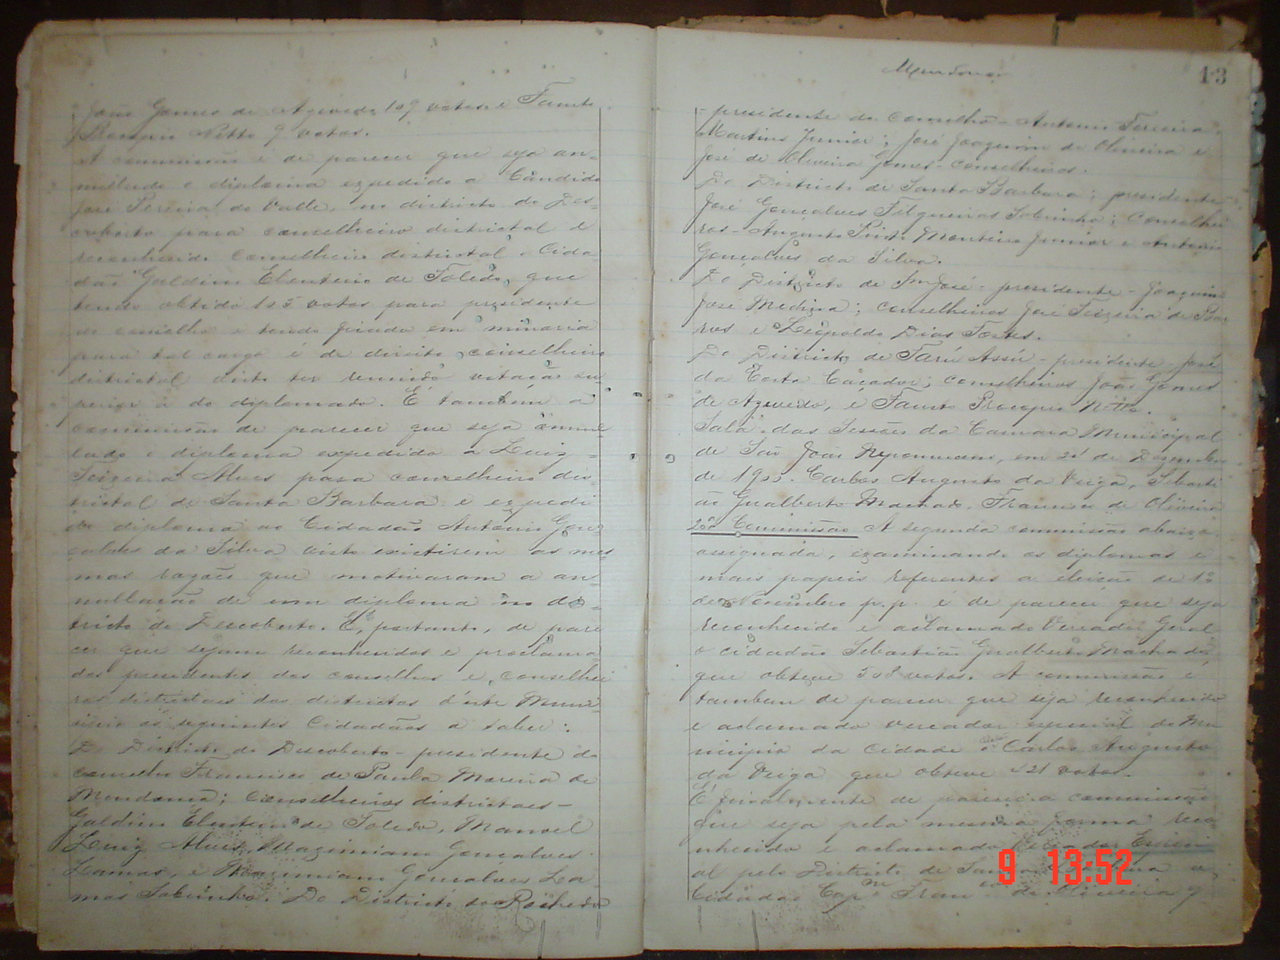 João Gomes de Azevedo 109 votos e Fausto
Procopio Netto 9 votos.
A commissão é de parecer que seja an-
nullado o diploma expedido a Candido
José Pereira do Valle, no districto do Des-
coberto para conselheiro districtal e
reconhecido conselheiro districtal o Cida
dão Galdino Eleuterio de Toledo, que
tendo obtido 125 votos para presidente
do conselho e tendo ficado em minoria
para tal cargo é de direito conselheiro
districtal visto ter reunido votação su-
perior á do diplomado. E tambem a
commissão de parecer que seja annul
lado o diploma expedido a Luiz
Teixeira Alves para conselheiro dis-
trictal de Santa Barbara e expedi
do diploma ao Cidadão Antonio Gon-
çalves da Silva visto existirem as mes
mas razões que motivaram a an-
nullação de um diploma no dis-
tricto do Descoberto. É, portanto, de pare
cer que sejam reconhecidos e proclama
dos presidentes dos conselhos e conselhei
ros districtaes dos districtos d'este Muni-
cipio os seguintes Cidadãos a saber:
Do Districto do Descoberto - presidente do
conselho Francisco de Paula Moreira de
Mendonça; Conselheiros districtaes -
Galdino Eleuterio de Toledo, Manoel
Luiz Alves, Maximiam Gonçalves
Lamas, e Maximiam Gonçalves La-
mas Sobrinho. Do Districto do Rochedo
Mendonça
13
- presidente do Conselho - Antonio Ferreira
Martins Junior; José Joaquim de Oliveira e
José de Oliveira Gomes - conselheiros.
Do Districto de Santa Barbara; presidente
José Gonçalves Filgueiras Sobrinho; Conselhei
ros - Augusto Monteiro Junior e Antonio
Gonçalves da Silva.
Do Districto de São José - presidente - Joaquim
José Medina; conselheiros José Teixeira de Bar
ros e Leopoldo Dias Fortes.
Do Districto de Tarú Assú - presidente José
da Costa Caçador; conselheiros João Gomes
de Azevedo, e Fausto Procopio Netto.
Sala das Sessões da Camara Municipal
de São João Nepomuceno, em 21 de Dezembro
de 1900. Carlos Augusto da Veiga, Sebasti
ão Gualberto Machado, Francisco de Oliveira
2ª Commissão A segunda commissão abaixo
assignada, examinando os diplomas e
mais papeis referentes a eleição de 1º
de Novembro p.p. é de parecer que seja
reconhecido e aclamado Vereador Geral
o cidadão Sebastião Gualberto Machado,
que obteve 508 votos. A commissão é
tambem de parecer que seja reconhecido
e aclamado vereador especial do Mu
nicipio da Cidade o Carlos Augusto
da Veiga que obteve 121 votos.
É finalmente de parecer a commissão
que seja pela mesma forma reco
nhecido e aclamado Vereador Especi
al pelo Districto de Santa Barbara o
Cidadão Capm Francco de Oliveira q
9 13:52